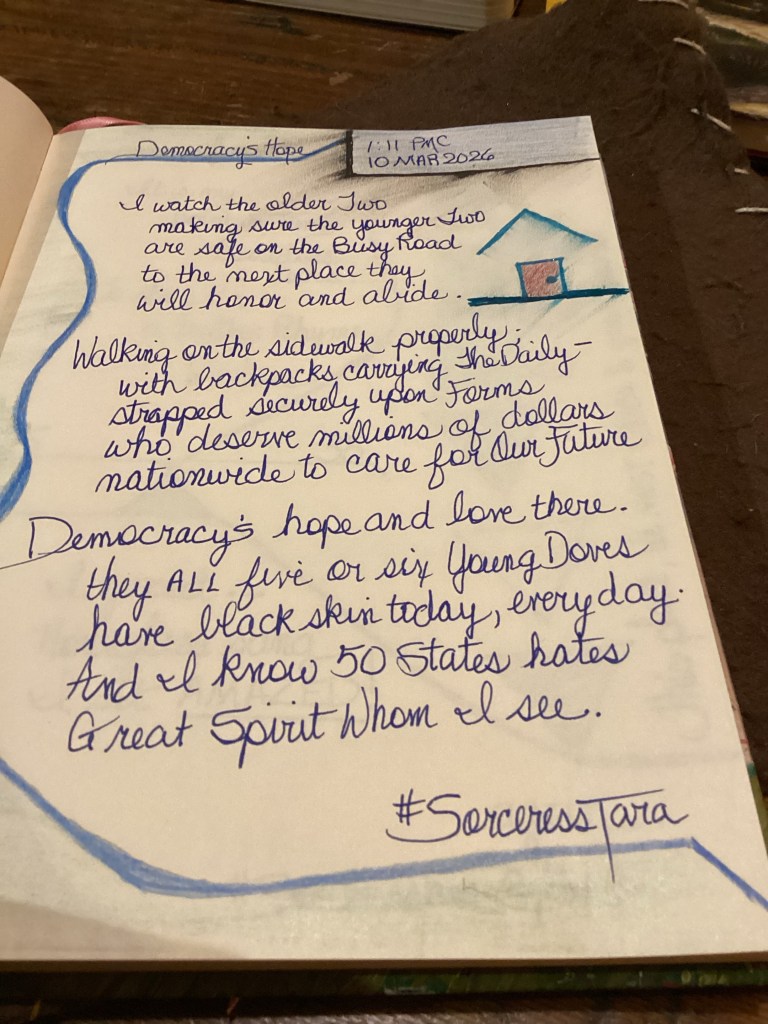 Democracy's Hope
1:11 PMC
10 MAR 2026
I watch the older Two
making sure the younger Two
are safe on the Busy Road
to the next place they
will honor and abide.
Walking on the sidewalk properly.
with backpacks carrying The Daily-
strapped securely upon Forms
who deserve millions of dollars
nationwide to care for Our Future
Democracy's hope and love there.
they ALL five or six Young Doves
have black skin today, every day.
And I know 50 States hates
Great Spirit Whom I see.
#SorceressTara